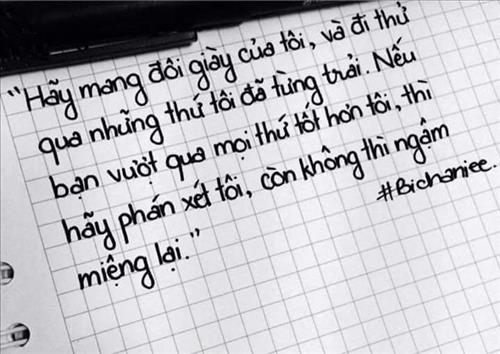 "Hãy mang đôi giày của tôi, và đi thử
qua những thứ tôi đã từng trải. Nếu
bạn vượt qua mọi thứ tốt hơn tôi, thì
hãy phán xét tôi, còn không thì ngậm
miệng lại."
#Bichaniee.